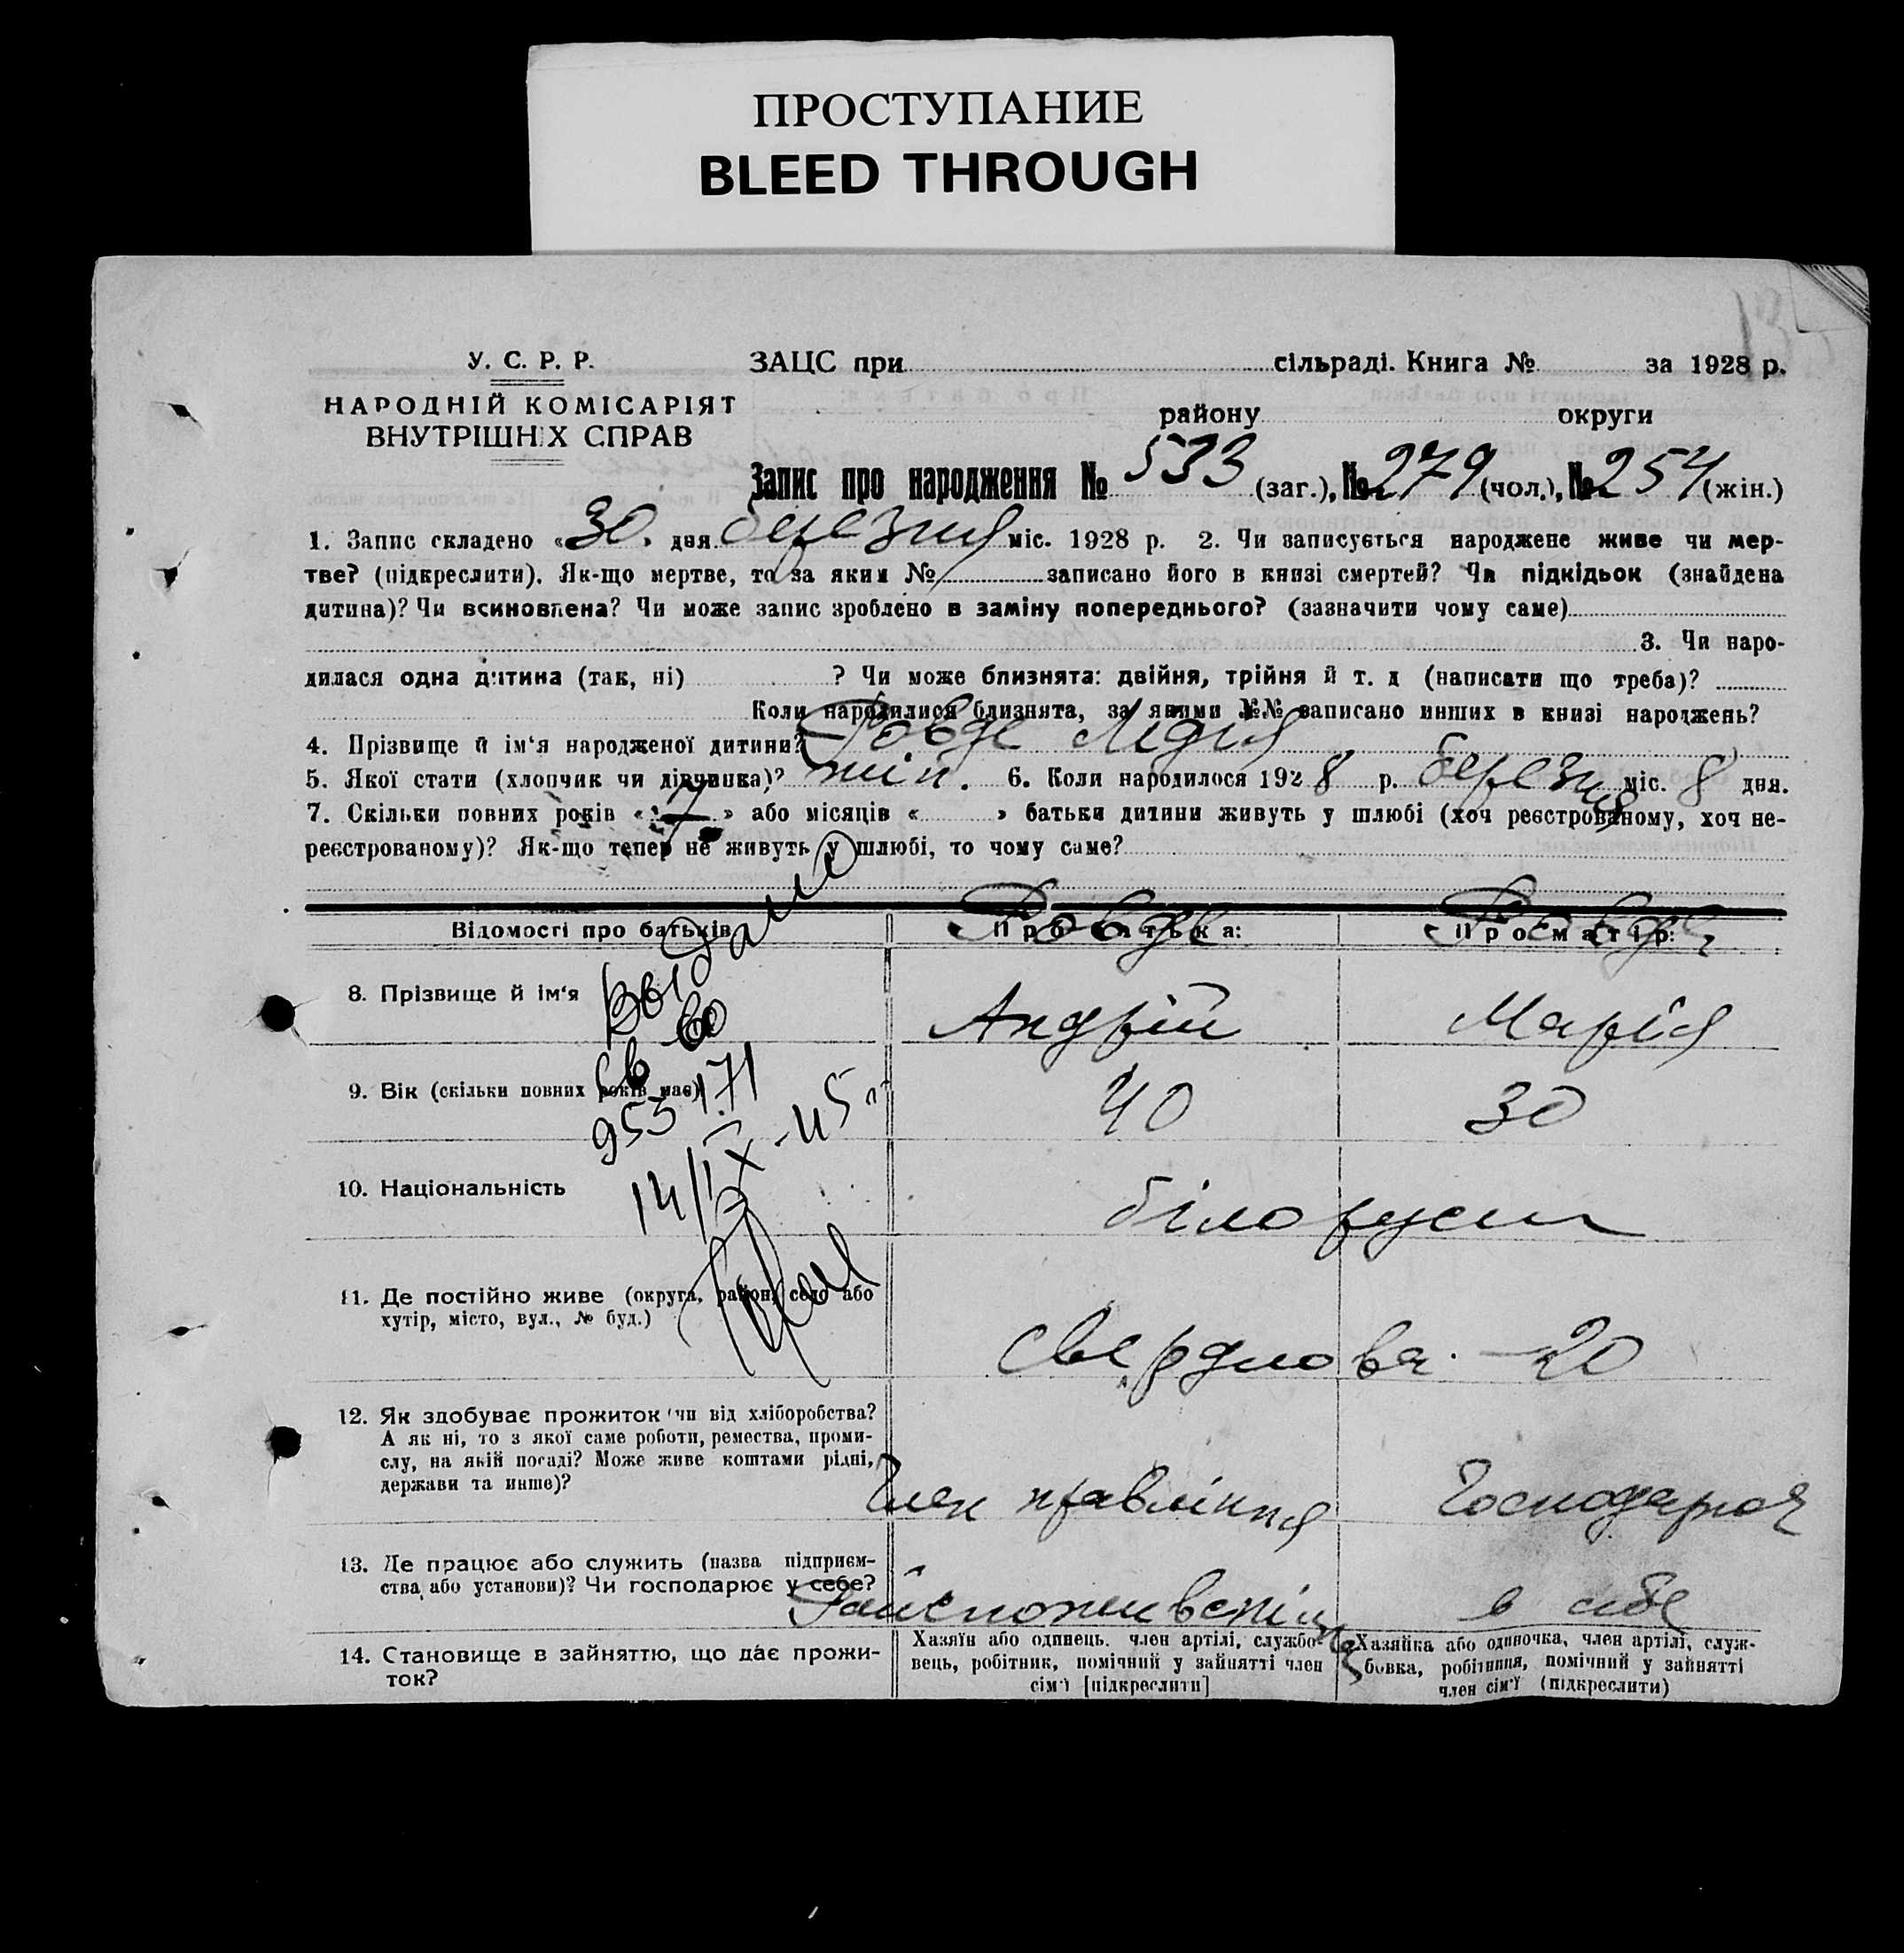 ПРОСТУПАНИЕ
BLEED THROUGH
У. С. Р. Р.
НАРОДНІЙ КОМІСАРІЯТ
ВНУТРІШНІХ СПРАВ
ЗАЦС при сільраді. Книга № за 1928 р.
району округи
Запис про народження № 533 (заг.), № 279 (чол.), № 254 (жін.)
1. Запис складено «30» дня березня міс. 1928 р. 2. Чи записується народжене живе чи мер-
тве? (підкреслити). Як-що мертве, то за яким № записано його в книзі смертей? Чи підкідьок (знайдена
дитина)? Чи всиновлена? Чи може запис зроблено в заміну попереднього? (зазначити чому саме)
3. Чи наро-
дилася одна дитина (так, ні) ? Чи може близнята: двійня, трійня й т. д (написати що треба)?
Коли народилися близнята, за якими №№ записано инших в книзі народжень?
4. Прізвище й ім'я народженої дитини? Ровде Лідія
5. Якої стати (хлопчик чи дівчинка)? жін. 6. Коли народилося 1928 р. березня міс. 8 дня.
7. Скільки повних років «7» або місяців « » батьки дитини живуть у шлюбі (хоч реєстрованому, хоч не-
реєстрованому)? Як-що тепер не живуть у шлюбі, то чому саме?
Відомості про батьків Про батька: Про матір:
Ровде Ровде
8. Прізвище й ім'я Андрій Марія
Выдано
св-во
9. Вік (скільки повних років має) 40 30
953171
14/IX-45
10. Національність білоруси
11. Де постійно живе (округа, район, село або
хутір, місто, вул., № буд.)
Свердлова 20
12. Як здобуває прожиток (чи від хліборобства?
А як ні, то з якої саме роботи, ремества, проми-
слу, на якій посаді? Може живе коштами рідні,
держави та инше)?
Член правління Господарюя
13. Де працює або служить (назва підприєм-
ства або установи)? Чи господарює у себе?
в себе
14. Становище в зайняттю, що дає прожи-
ток?
Хазяїн або одинець. член артілі, службо-
вець, робітник, помічний у зайнятті член
сім'ї [підкреслити]
Хазяйка або одиночка, член артілі, служ-
бовка, робітниця, помічний у зайнятті
член сім'ї (підкреслити)